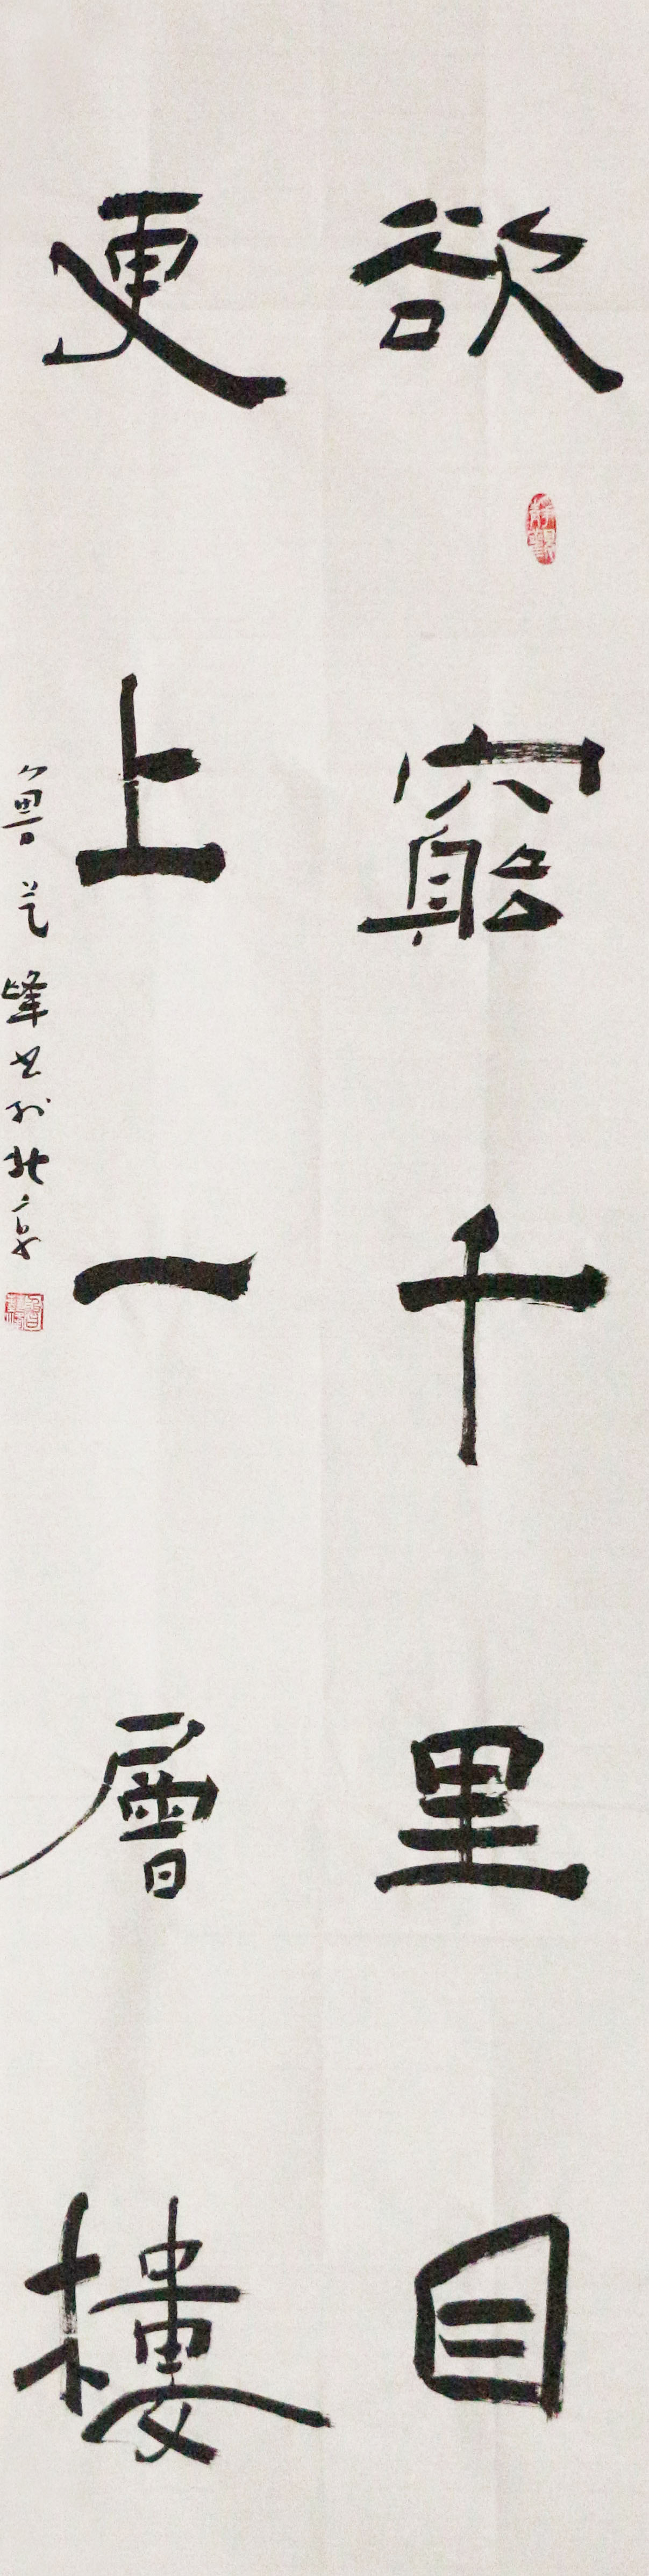 欲窮千里目
更上一層樓
魯芝峰书於北京